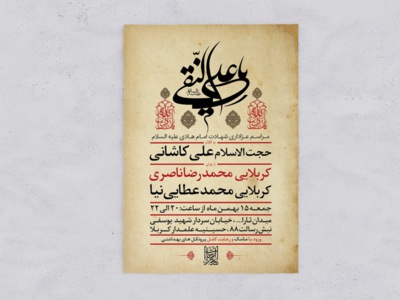 یا علی النقی
مراسم عزاداری شهادت امام هادی علیه السلام
حجت الاسلام علی کاشانی
کربلایی محمدرضا ناصری
کربلایی محمد عطایی نیا
جمعه ۱۵ بهمن ماه از ساعت: ۲۰ الی ۲۲
میدان ثارا... ، خیابان سردار شهید یوسفی
نبش رسالت ۸۸، حسینیه علمدار کربلا
ورود با ماسک و رعایت کامل پروتکل های بهداشتی